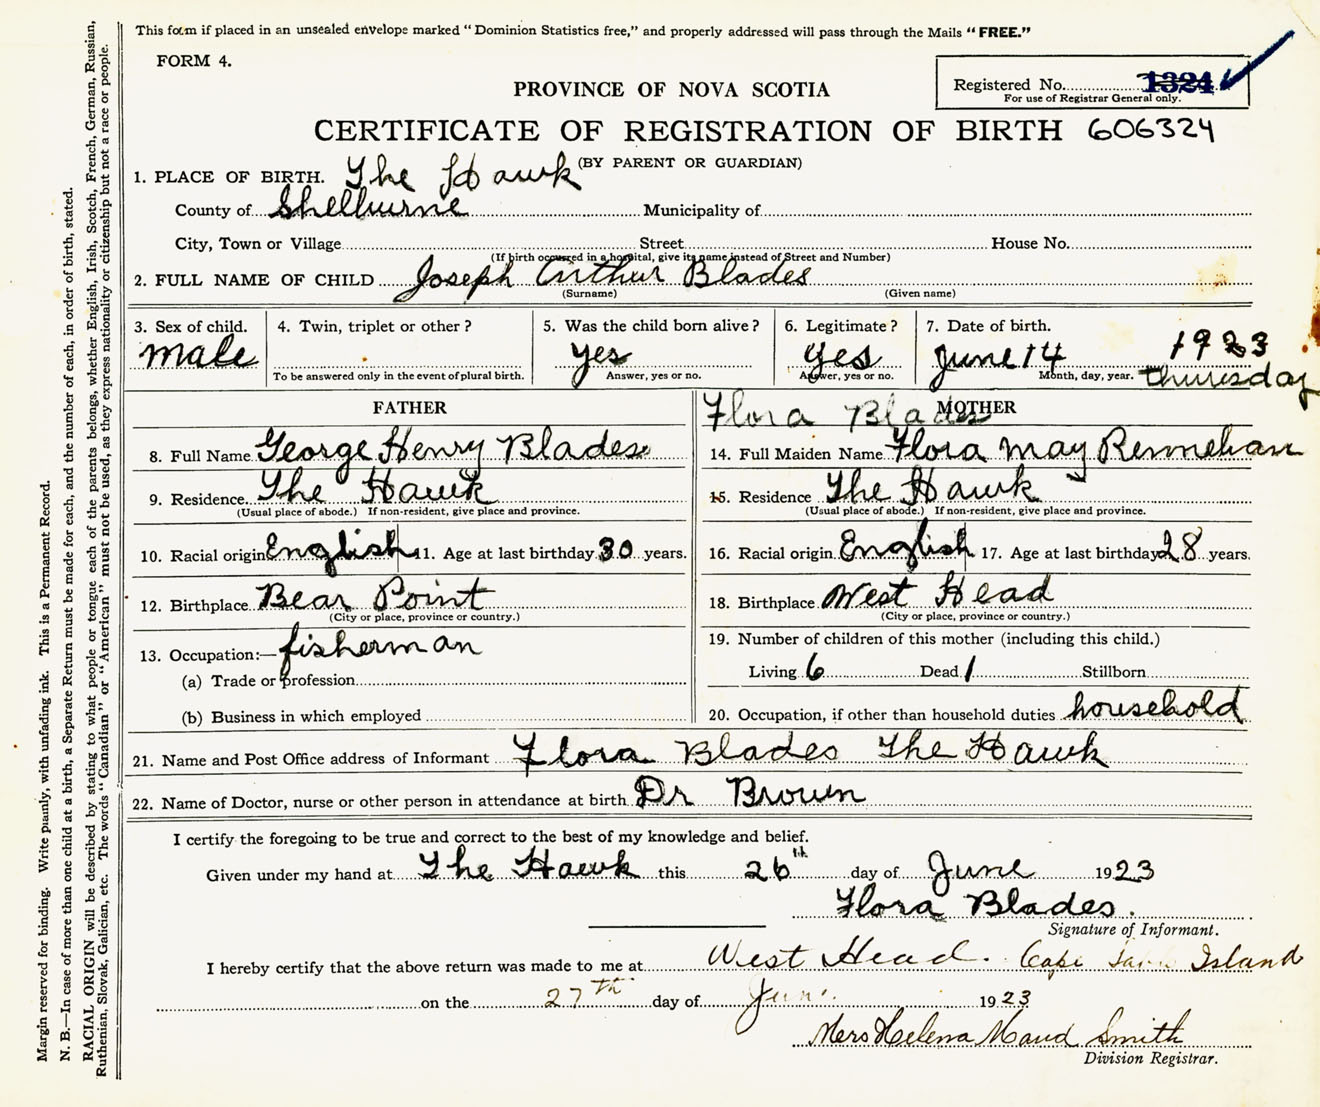 This form if placed in an unsealed envelope marked "Dominion Statistics free," and properly addressed will pass through the Mails "FREE."
FORM 4.
Registered No. 1324
For use of Registrar General only.
PROVINCE OF NOVA SCOTIA
CERTIFICATE OF REGISTRATION OF BIRTH 606324
(BY PARENT OR GUARDIAN)
1. PLACE OF BIRTH. The Hawk
County of Shelburne Municipality of
City, Town or Village Street House No.
(If birth occurred in a hospital, give its name instead of Street and Number)
2. FULL NAME OF CHILD Joseph Arthur Blades
(Surname) (Given name)
3. Sex of child. 4. Twin, triplet or other? 5. Was the child born alive? 6. Legitimate? 7. Date of birth.
male yes yes June 14 1923
To be answered only in the event of plural birth. Answer, yes or no. Answer, yes or no. Month, day, year. thuresday
FATHER
8. Full Name George Henry Blades
9. Residence The Hawk
(Usual place of abode.) If non-resident, give place and province.
10. Racial origin English 11. Age at last birthday 30 years.
12. Birthplace Bear Point
(City or place, province or country.)
13. Occupation:— fisherman
(a) Trade or profession
(b) Business in which employed
Flora Blades
MOTHER
14. Full Maiden Name Flora May Rennehan
15. Residence The Hawk
(Usual place of abode.) If non-resident, give place and province.
16. Racial origin English 17. Age at last birthday 28 years.
18. Birthplace West Head
(City or place, province or country.)
19. Number of children of this mother (including this child.)
Living 6 Dead 1 Stillborn
20. Occupation, if other than household duties household
21. Name and Post Office address of Informant Flora Blades The Hawk
22. Name of Doctor, nurse or other person in attendance at birth Dr Brown
I certify the foregoing to be true and correct to the best of my knowledge and belief.
Given under my hand at The Hawk this 26th day of June 1923
Flora Blades.
Signature of Informant.
I hereby certify that the above return was made to me at West Head. Cape Island
on the 27th day of June 1923
Mers Helena Maud Smith
Division Registrar.
Margin reserved for binding. Write plainly, with unfading ink. This is a Permanent Record.
N. B.—In case of more than one child at a birth, a Separate Return must be made for each, and the number of each, in order of birth, stated.
RACIAL ORIGIN will be described by stating to what people or tongue each of the parents belongs, whether English, Irish, Scotch, French, German, Russian,
Ruthenian, Slovak, Galician, etc. The words "Canadian" or "American" must not be used, as they express nationality or citizenship but not a race or people.